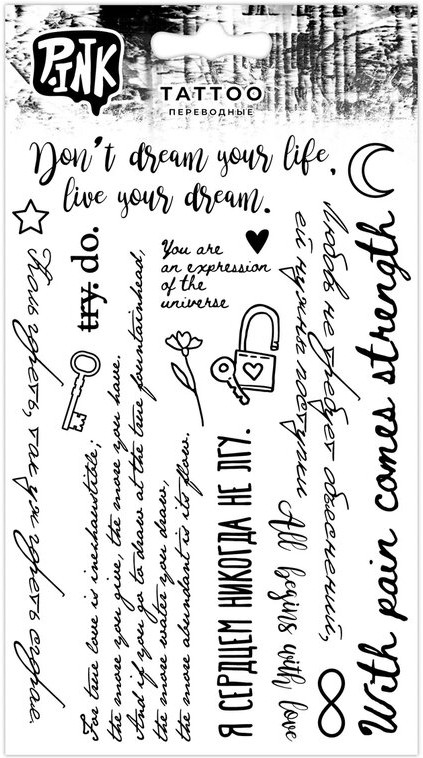 PINK
TATTOO
ПЕРЕВОДНЫЕ
Don't dream your life,
live your dream.
try. do.
You are
an expression
of the
universe
Коль гореть, так уж гореть сгорая.
For true love is inexhaustible;
the more you give, the more you have.
And if you go to draw at the true fountainhead,
the more water you draw,
the more abundant is its flow.
Я СЕРДЦЕМ НИКОГДА НЕ ЛГУ.
All begins with love
Любовь не требует объяснений,
ей нужны поступки
With pain comes strength